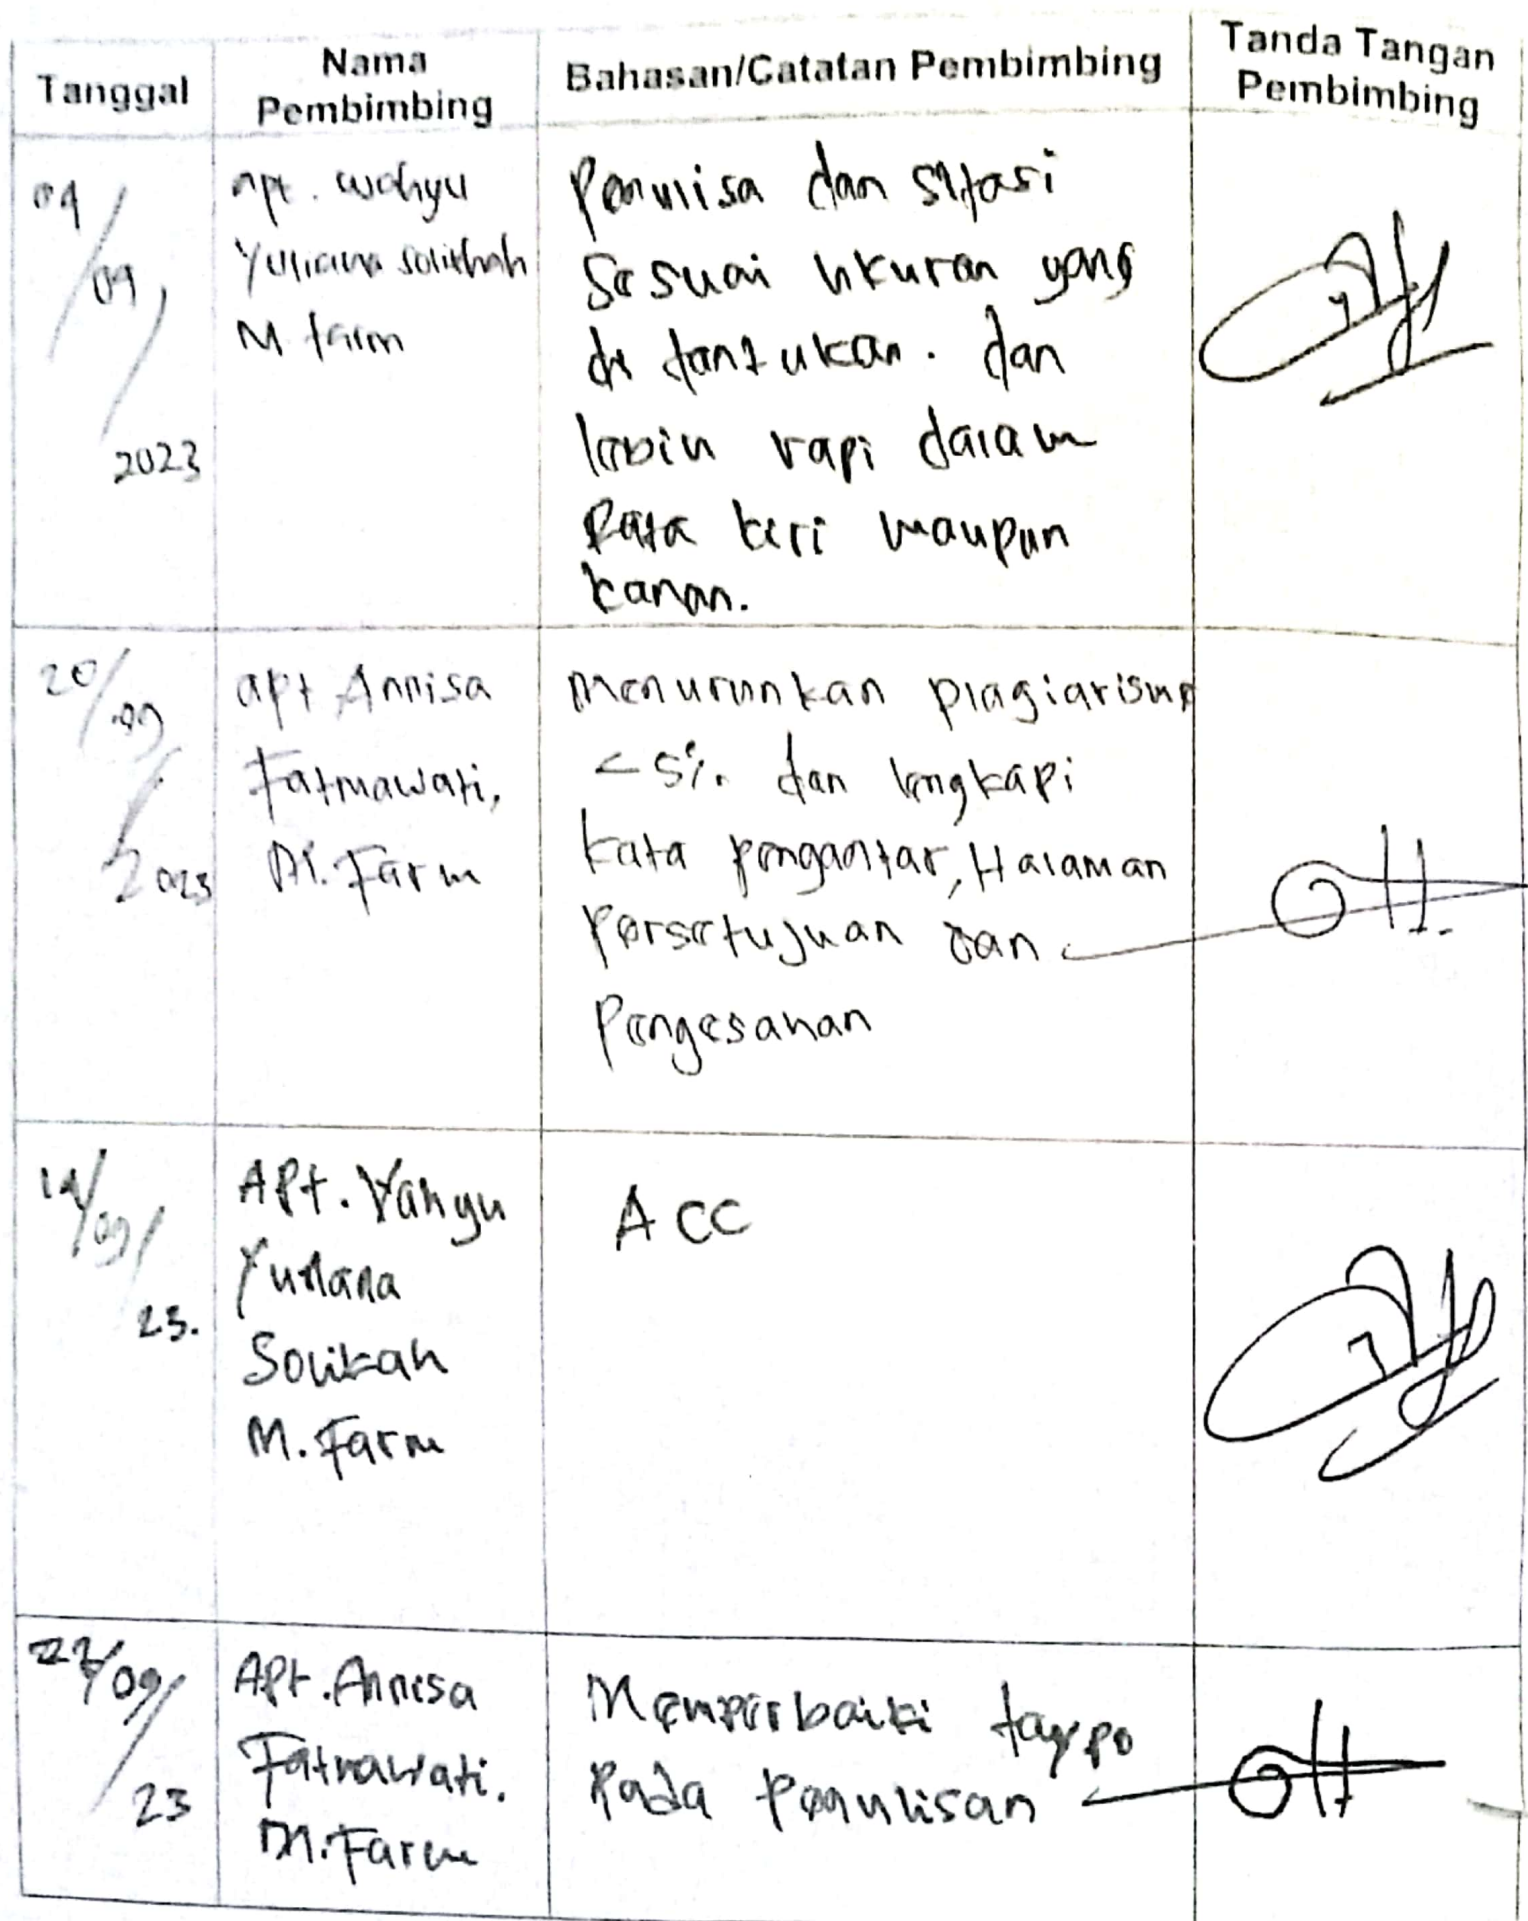 Tanggal
Nama
Pembimbing
Bahasan/Catatan Pembimbing
Tanda Tangan
Pembimbing
09
/09/
2023
apt. wahyu
Yuliana solikhah
M farm
Penulisa dan sitasi
Sesuai ukuran yang
di tentukan. dan
lebih rapi dalam
Rata kiri maupun
kanan.
20/
09/
2023
apt Annisa
Fatmawati,
M. Farm
Menurunkan plagiarisme
<5%. dan lengkapi
kata pengantar, Halaman
Persetujuan dan
Pengesahan
/09/
23.
Apt. Wahyu
Yuliana
Solikah
M. Farm
ACC
/09/
23
Apt. Annisa
Fatmawati.
M. Farm
Memperbaiki taypo
Pada Penulisan